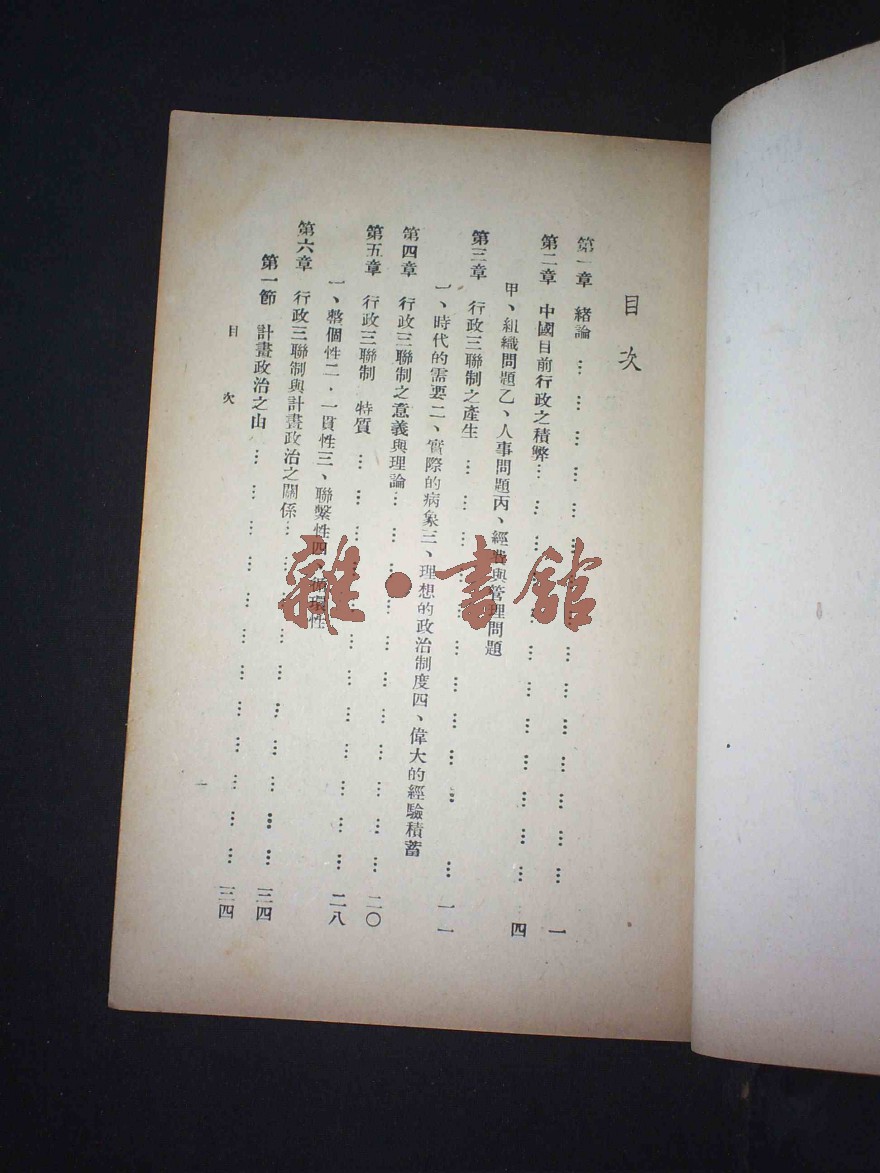 目次
第一章　緒論………………………………一
第二章　中國目前行政之積弊………………………………四
甲、組織問題乙、人事問題丙、經費與管理問題
第三章　行政三聯制之產生………………………………一一
一、時代的需要二、實際的病象三、理想的政治制度四、偉大的經驗積蓄
第四章　行政三聯制之意義與理論………………………………二〇
第五章　行政三聯制　特質………………………………二八
一、整個性二．一貫性三、聯繫性四、循環性
第六章　行政三聯制與計畫政治之關係………………………………三四
第一節　計畫政治之由………………………………三四
目次
一
雜·書館